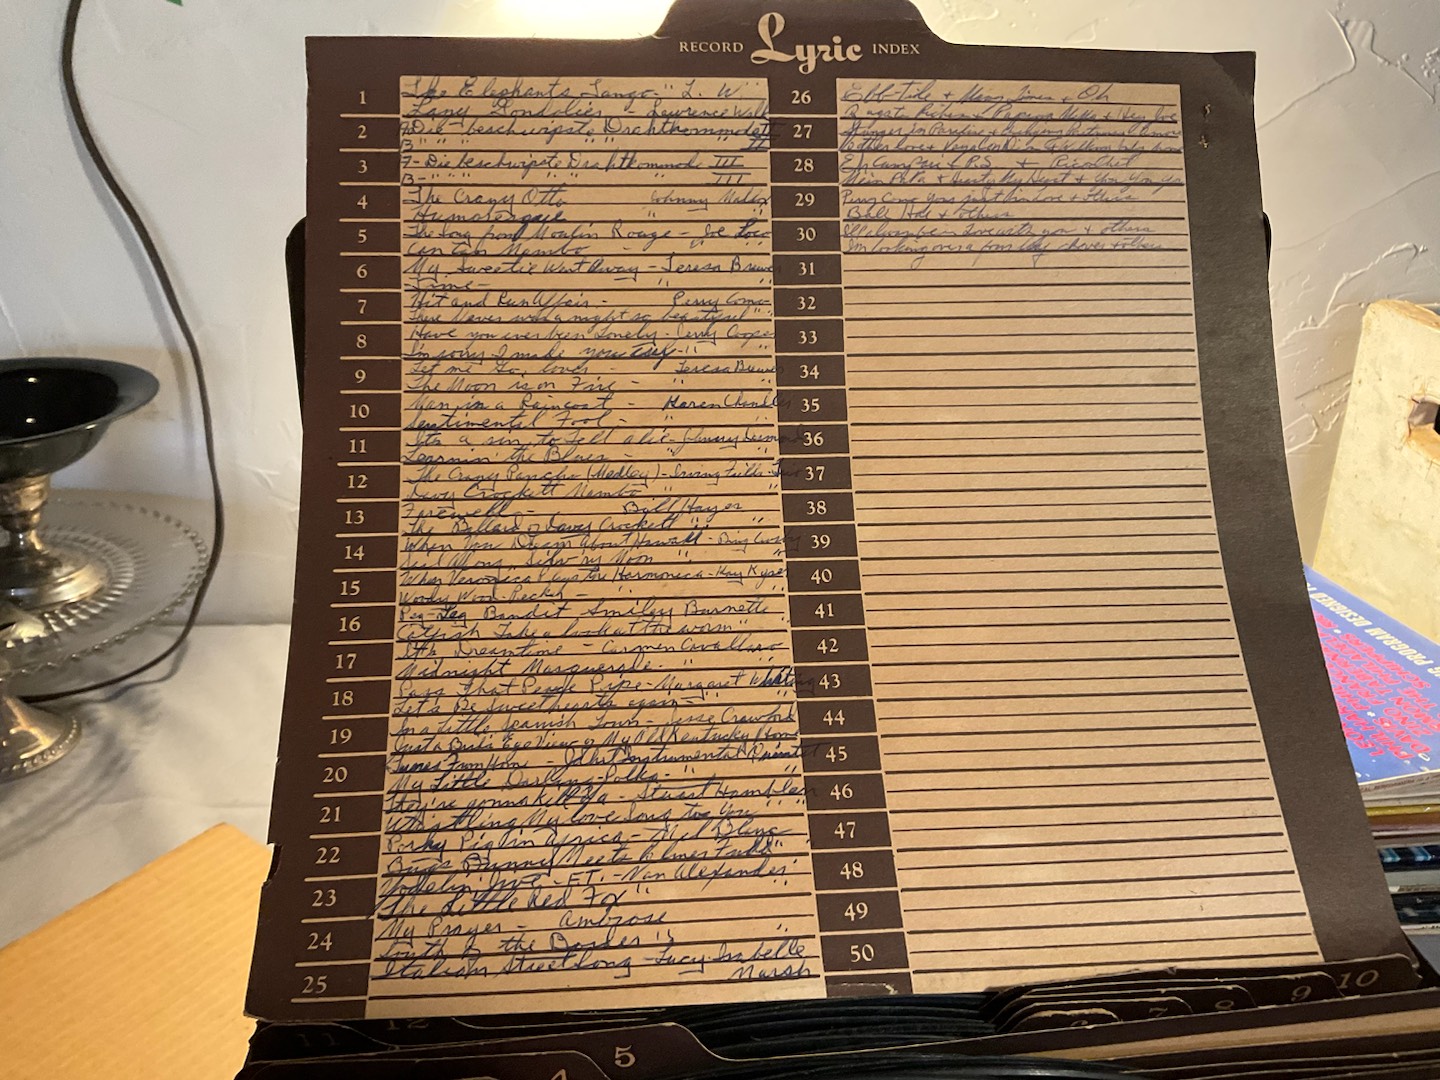 RECORD Lyric INDEX
1 The Elephants Tango - " L. W.
Lazy Gondolier - Lawrence Welk
2 A Die beschwipste Drahtkommode II
B " " " " II
3 A - Die beschwipste Drahtkommode III
B - " " " " III
4 The Crazy Otto Johnny Maddox
Humoresque " "
5 The Song from Moulin Rouge - Joe Loco
Can Can Mambo " "
6 My Sweetie Went Away - Teresa Brewer
Time - " "
7 Hit and Run Affair - Perry Como
There Never was a night so beautiful " "
8 Have you ever been Lonely - Jerry Cooper
I'm sorry I made you cry - " "
9 Let me Go, Lover - Teresa Brewer
The Moon is on Fire - " "
10 Man in a Raincoat - Karen Chandler
Sentimental Fool - " "
11 Its a sin to Tell a lie - Johnny Desmond
Learnin' the Blues - " "
12 The Crazy Pancho (Medley) - Irving Fields Trio
Davy Crockett Mambo " "
13 Farewell - Bill Hayes
The Ballard of Davy Crockett " "
14 When You Dream About Hawaii - Bing Crosby
Sail Along, Silv'ry Moon " "
15 When Veronica Plays the Harmonica - Kay Kyser
Woody Wood-Pecker - " "
16 Peg-Leg Bandit Smiley Burnette
Catfish Take a look at the worm " "
17 Dreamtime - Carmen Cavallaro
Midnight Masquerade - " "
18 Pass That Peace Pipe - Margaret Whiting
Let's Be Sweethearts again - " "
19 In a Little Spanish Town - Jesse Crawford
Just a Bird's Eye View of My Old Kentucky Home
20 Tunes From Home - Instrumental Quartet
My Little Darling - Polka - " "
21 They're gonna Kill Ya - Stuart Hamblen
Whistling My Love Song to You " "
22 Porky Pig in Africa - Mel Blanc
Bugs Bunny Meets Elmer Fudd "
23 Yodelin' Jive - F.T. - Van Alexander
The Little Red Fox " "
24 My Prayer - Ambrose
South of the Border " "
25 Italian Street Song - Lucy Isabelle
Marsh
26 Ebb-Tide + + Oh
+ Papaya Mama + Hey Joe
27 Stranger in Paradise +
+ Vaya Con Dios
28 + P.S. + Ricochet
Mein Papa + + You You You
29 Perry Como you just in love + others
+ others
30 I'll always be in Love with you + others
I'm looking over a four leaf clover + others
31
32
33
34
35
36
37
38
39
40
41
42
43
44
45
46
47
48
49
50
5
6
7
8
9
10
11
12
4
PROGRAM